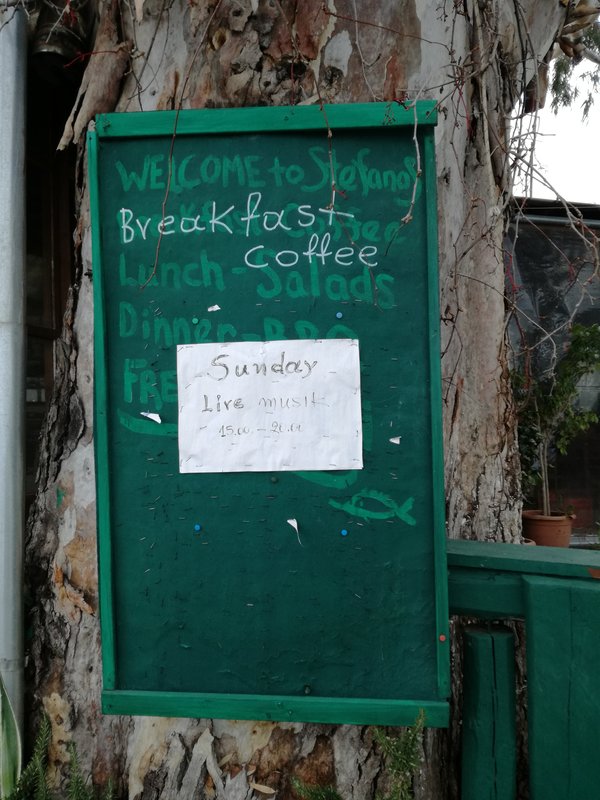 WELCOME to Stefanos
Breakfast
coffee
Lunch - Salads
Dinner - BBQ
FRE
Sunday
Live musik
15.00. - 20.00